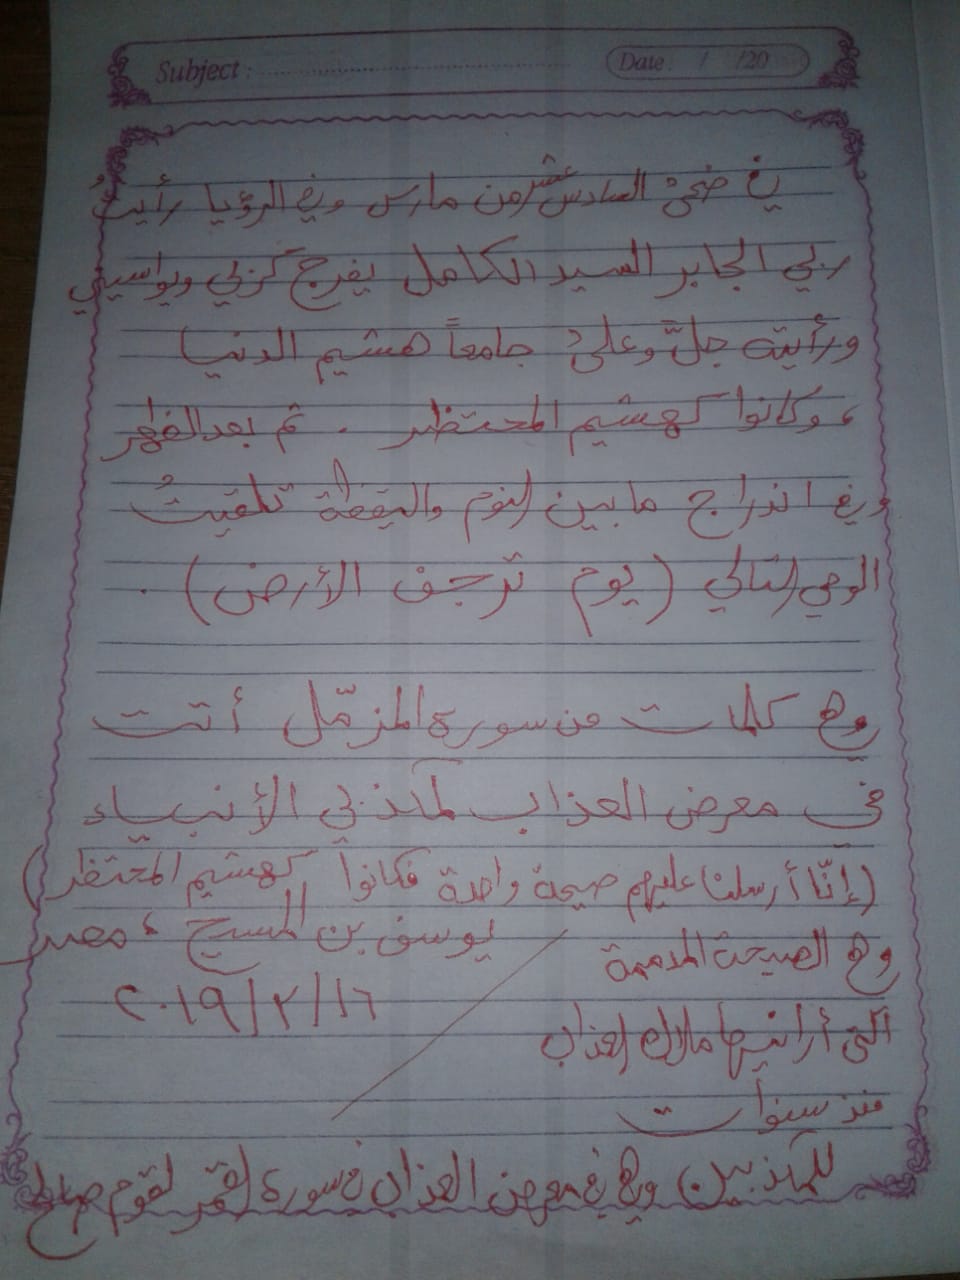 Subject : Date : / /20
في ضحىٰ السادس عشر من مارس وفي الرؤيا رأيتُ
ربي الجابر السيد الكامل يفرج كربي ويواسيني
ورأيته جلّ وعلىٰ جامعاً هشيم الدنيا
، وكانوا كهشيم المحتظر . ثم بعد الظهر
وفي اندراج ما بين النوم واليقظة تلقيتُ
الوحي التالي ( يوم ترجف الأرض ) .
وهي كلمات من سورة المزمّل أتت
في معرض العذاب لمكذبي الأنبياء
( إنّا أرسلنا عليهم صيحة واحدة فكانوا كهشيم المحتظر )
وهي الصيحة المدممة
التي أرانيها ملاك العذاب
منذ سنوات
للمكذبين وهي في معرض العذاب في سورة القمر لقوم صالح
يوسف بن المسيح ، مصر
٢٠١٩/٣/١٦